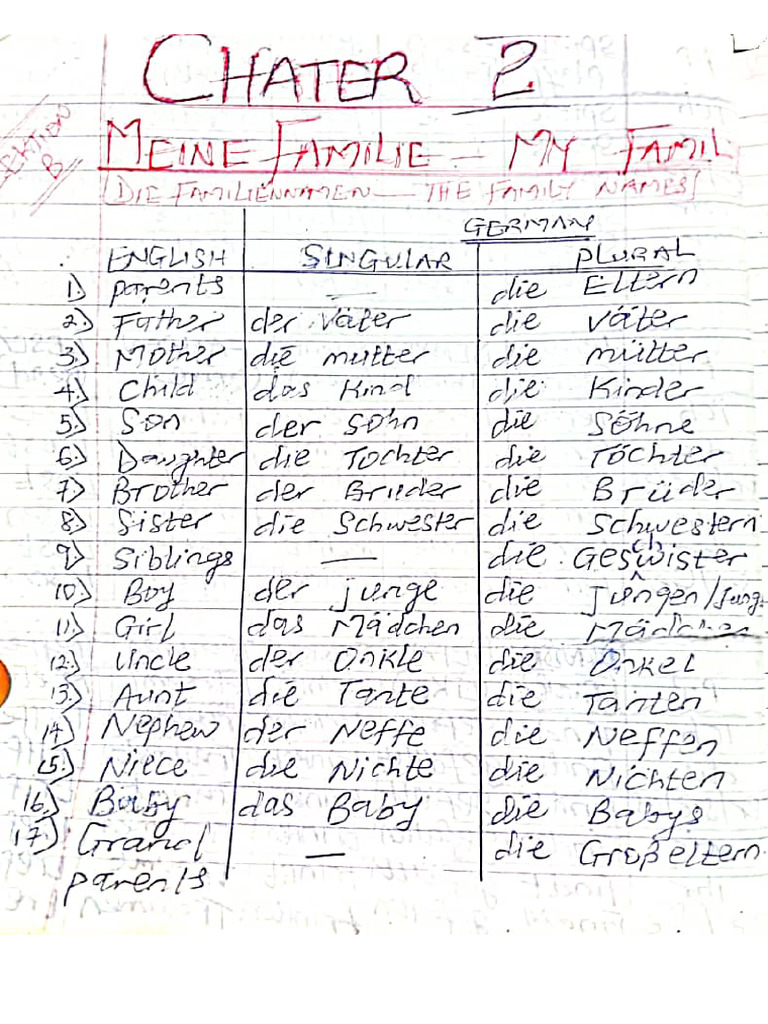 CHATER 2
LEKTION B
MEINE FAMILIE - MY FAMIL
(DIE FAMILIENNAMEN - THE FAMILY NAMES)
GERMAN
ENGLISH SINGULAR PLURAL
1.) parents — die Eltern
2.) Father der Väter die Väter
3.) Mother die mutter die mütter
4.) Child das Kind die Kinder
5.) Son der Sohn die Söhne
6.) Daughter die Tochter die Töchter
7.) Brother der Bruder die Brüder
8.) Sister die Schwester die Schwestern
9.) Siblings — die Geschwister
10.) Boy der junge die jungen/Jung
11.) Girl das Mädchen die Mädchen
12.) Uncle der Onkle die Onkel
13.) Aunt die Tante die Tanten
14.) Nephew der Neffe die Neffen
15.) Niece die Nichte die Nichten
16.) Baby das Baby die Babys
17.) Grand — die Großeltern
parents